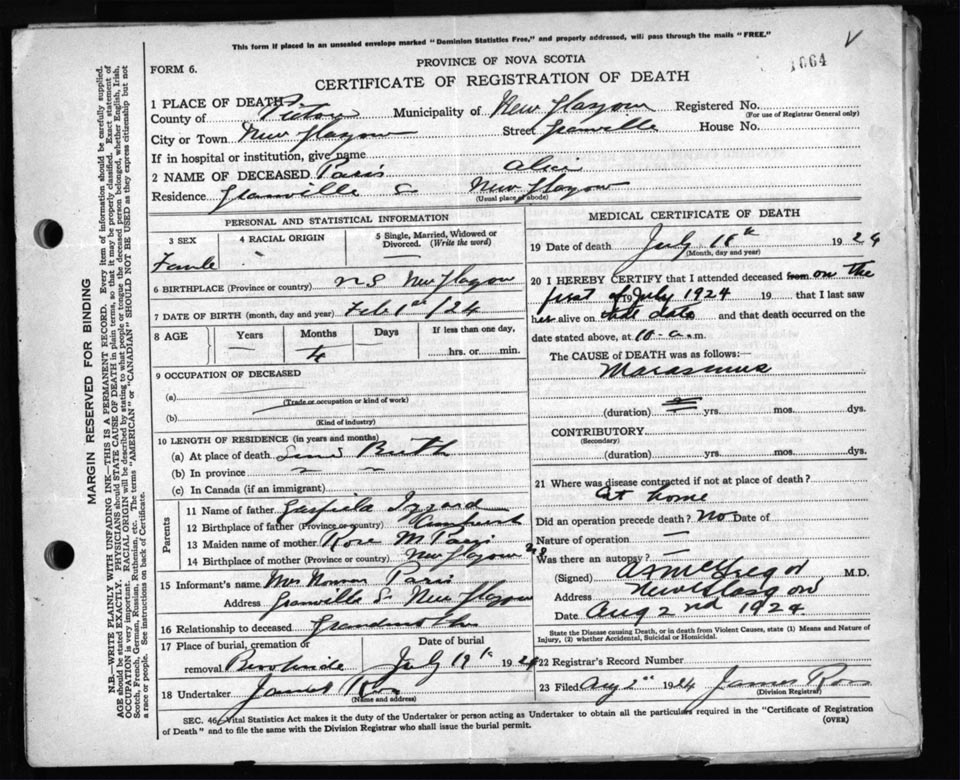 This form if placed in an unsealed envelope marked "Dominion Statistics Free," and properly addressed, will pass through the mails "FREE."
1664
FORM 6.
PROVINCE OF NOVA SCOTIA
CERTIFICATE OF REGISTRATION OF DEATH
1 PLACE OF DEATH
County of Pictou Municipality of New Glasgow Registered No.
(For use of Registrar General only)
City or Town New Glasgow Street Granville House No.
If in hospital or institution, give name
2 NAME OF DECEASED Paris Alice
Residence Granville St New Glasgow
(Usual place of abode)
PERSONAL AND STATISTICAL INFORMATION
3 SEX 4 RACIAL ORIGIN 5 Single, Married, Widowed or Divorced. (Write the word)
Female
6 BIRTHPLACE (Province or country) N S New Glasgow
7 DATE OF BIRTH (month, day and year) Feb 1st /24
8 AGE Years Months Days If less than one day,
4 hrs. or min.
9 OCCUPATION OF DECEASED
(a)
(Trade or occupation or kind of work)
(b)
(Kind of industry)
10 LENGTH OF RESIDENCE (in years and months)
(a) At place of death Since Birth
(b) In province " "
(c) In Canada (if an immigrant)
Parents
11 Name of father Izzard
12 Birthplace of father (Province or country) Amherst
13 Maiden name of mother Rose M Paris
14 Birthplace of mother (Province or country) New Glasgow NS
15 Informant's name Mrs Norman Paris
Address Granville St New Glasgow
16 Relationship to deceased Grandmother
17 Place of burial, cremation or removal Date of burial
July 19th 1924
18 Undertaker James
(Name and address)
MEDICAL CERTIFICATE OF DEATH
19 Date of death July 18th 1924
(Month, day and year)
20 I HEREBY CERTIFY that I attended deceased from on the
first of July 1924 19 that I last saw
her alive on date and that death occurred on the
date stated above, at 10 a. m.
The CAUSE of DEATH was as follows:—
Marasmus
(duration) yrs. mos. dys.
CONTRIBUTORY
(Secondary)
(duration) yrs. mos. dys.
21 Where was disease contracted if not at place of death?
At home
Did an operation precede death? No Date of
Nature of operation —
Was there an autopsy? —
(Signed) McGregor M.D.
Address New Glasgow
Date Aug 2nd 1924
State the Disease causing Death, or in death from Violent Causes, state (1) Means and Nature of Injury, (2) whether Accidental, Suicidal or Homicidal.
22 Registrar's Record Number
23 Filed Aug 2nd 1924 James Ross
(Division Registrar)
SEC. 46, Vital Statistics Act makes it the duty of the Undertaker or person acting as Undertaker to obtain all the particulars required in the "Certificate of Registration
of Death" and to file the same with the Division Registrar who shall issue the burial permit. (OVER)
MARGIN RESERVED FOR BINDING
N.B.—WRITE PLAINLY WITH UNFADING INK—THIS IS A PERMANENT RECORD. Every item of information should be carefully supplied.
AGE should be stated EXACTLY. PHYSICIANS should STATE CAUSE OF DEATH in plain terms, so that it may be properly classified. Exact statement of
OCCUPATION is very important. RACIAL ORIGIN will be described by stating to what people or tongue the deceased person belonged, whether English, Irish,
Scotch, French, German, Russian, Ruthenian, etc. The terms "AMERICAN" or "CANADIAN" SHOULD NOT BE USED as they express citizenship but not
a race or people. See instructions on back of Certificate.